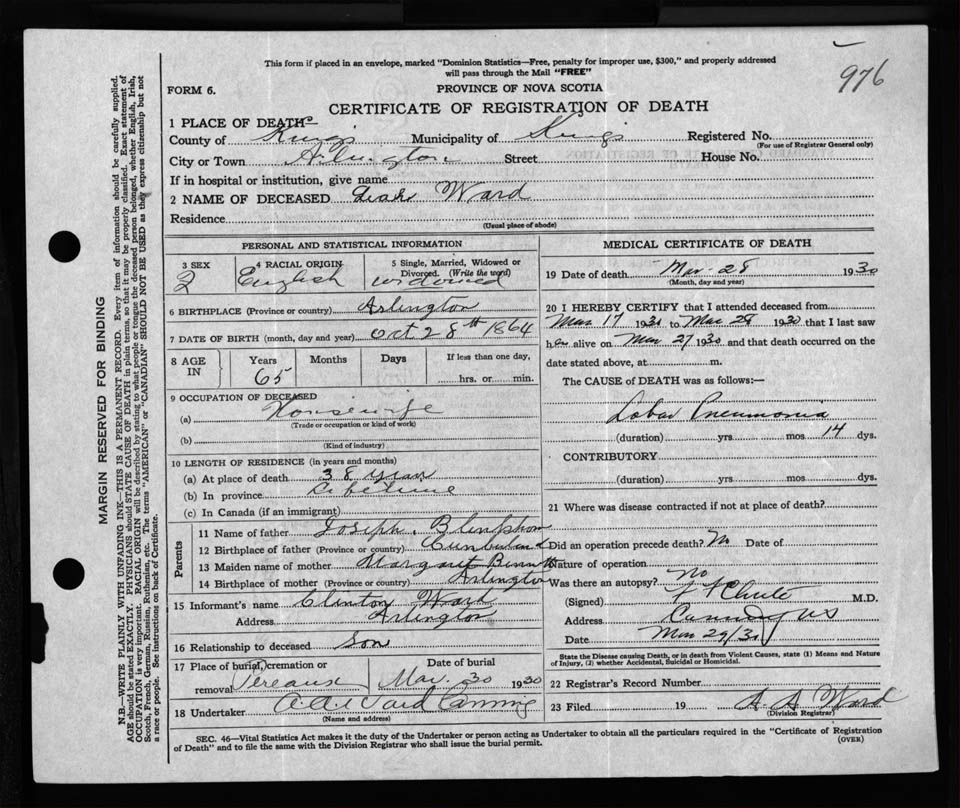 976
This form if placed in an envelope, marked "Dominion Statistics—Free, penalty for improper use, $300," and properly addressed
will pass through the Mail "FREE"
FORM 6.
PROVINCE OF NOVA SCOTIA
CERTIFICATE OF REGISTRATION OF DEATH
1 PLACE OF DEATH
County of Kings Municipality of Kings Registered No.
(For use of Registrar General only)
City or Town Arlington Street House No.
If in hospital or institution, give name
2 NAME OF DECEASED Ward
Residence
(Usual place of abode)
PERSONAL AND STATISTICAL INFORMATION
3 SEX 4 RACIAL ORIGIN 5 Single, Married, Widowed or
Divorced. (Write the word)
English widowed
6 BIRTHPLACE (Province or country) Arlington
7 DATE OF BIRTH (month, day and year) Oct 28th 1864
8 AGE IN Years Months Days If less than one day,
65 hrs. or min.
9 OCCUPATION OF DECEASED
(a) Housewife
(Trade or occupation or kind of work)
(b)
(Kind of industry)
10 LENGTH OF RESIDENCE (in years and months)
(a) At place of death 38 years
(b) In province Lifetime
(c) In Canada (if an immigrant)
Parents
11 Name of father Joseph
12 Birthplace of father (Province or country) Cumberland
13 Maiden name of mother Margaret Bennett
14 Birthplace of mother (Province or country) Arlington
15 Informant's name Clinton Ward
Address Arlington
16 Relationship to deceased Son
17 Place of burial, cremation or Date of burial
removal Pereaux Mar. 30 1930
18 Undertaker Canning
(Name and address)
MEDICAL CERTIFICATE OF DEATH
19 Date of death Mar. 28 1930
(Month, day and year)
20 I HEREBY CERTIFY that I attended deceased from
Mar 17 1930 to Mar 28 1930 that I last saw
her alive on Mar 27 1930 and that death occurred on the
date stated above, at m.
The CAUSE of DEATH was as follows:—
Lobar Pneumonia
(duration) yrs mos 14 dys.
CONTRIBUTORY
(duration) yrs mos dys.
21 Where was disease contracted if not at place of death?
Did an operation precede death? No Date of
Nature of operation
Was there an autopsy? No
(Signed) M.D.
Address Canning NS
Date Mar 29/30
State the Disease causing Death, or in death from Violent Causes, state (1) Means and Nature
of Injury, (2) whether Accidental, Suicidal or Homicidal.
22 Registrar's Record Number
23 Filed 19 Ward
(Division Registrar)
SEC. 46—Vital Statistics Act makes it the duty of the Undertaker or person acting as Undertaker to obtain all the particulars required in the "Certificate of Registration
of Death" and to file the same with the Division Registrar who shall issue the burial permit.
(OVER)
MARGIN RESERVED FOR BINDING
N.B.—WRITE PLAINLY WITH UNFADING INK—THIS IS A PERMANENT RECORD. Every item of information should be carefully supplied.
AGE should be stated EXACTLY. PHYSICIANS should STATE CAUSE OF DEATH in plain terms, so that it may be properly classified. Exact statement of
OCCUPATION is very important. RACIAL ORIGIN will be described by stating to what people or tongue the deceased person belonged, whether English, Irish,
Scotch, French, German, Russian, Ruthenian, etc. The terms "AMERICAN" or "CANADIAN" SHOULD NOT BE USED as they express citizenship but not
a race or people. See instructions on back of Certificate.